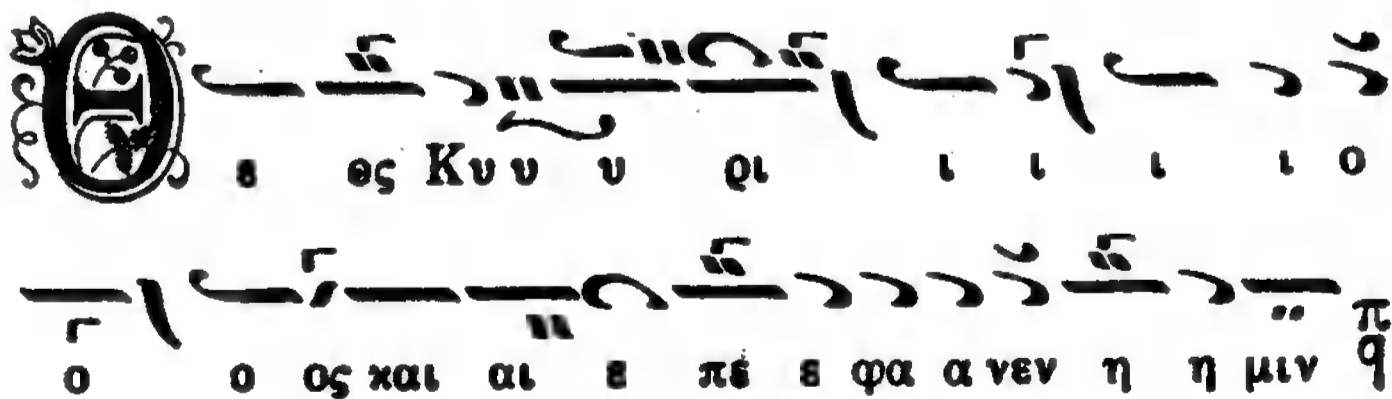 Θ ε ος Κυ υ υ ρι ι ι ι ι ο
ο ο ος και αι ε πέ ε φα α νεν η η μιν π q